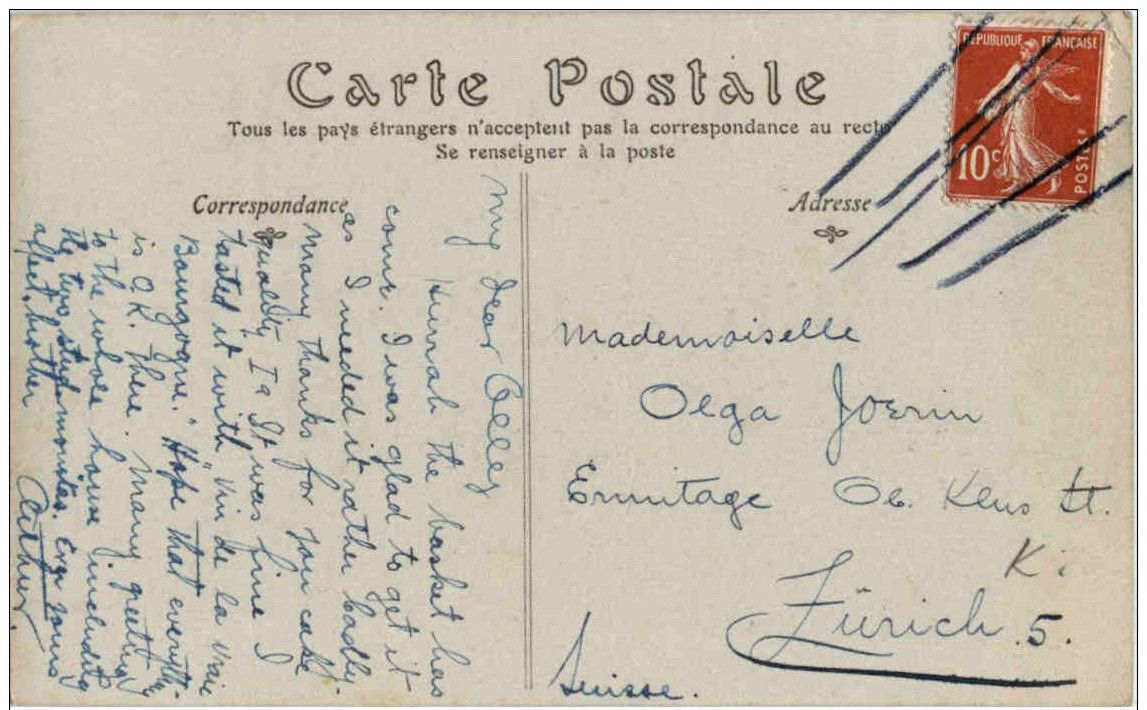 Carte Postale
Tous les pays étrangers n'acceptent pas la correspondance au recto
Se renseigner à la poste
Correspondance
Adresse
RÉPUBLIQUE FRANÇAISE
10c
POSTES
My dear Olley
Hurrah the basket has
come. I was glad to get it
as I needed it rather badly.
many thanks for your cake
quality I a It was fine I
tasted it with "Vin de la vraie
Bourgogne." Hope that everyth.
is O.K. there. many greetings
to the whole house including
the two Ever yours
affect. brother
Arthur.
Mademoiselle
Olga Joerin
Ermitage Ob. Klus St.
Ki
Zürich 5.
Suisse.